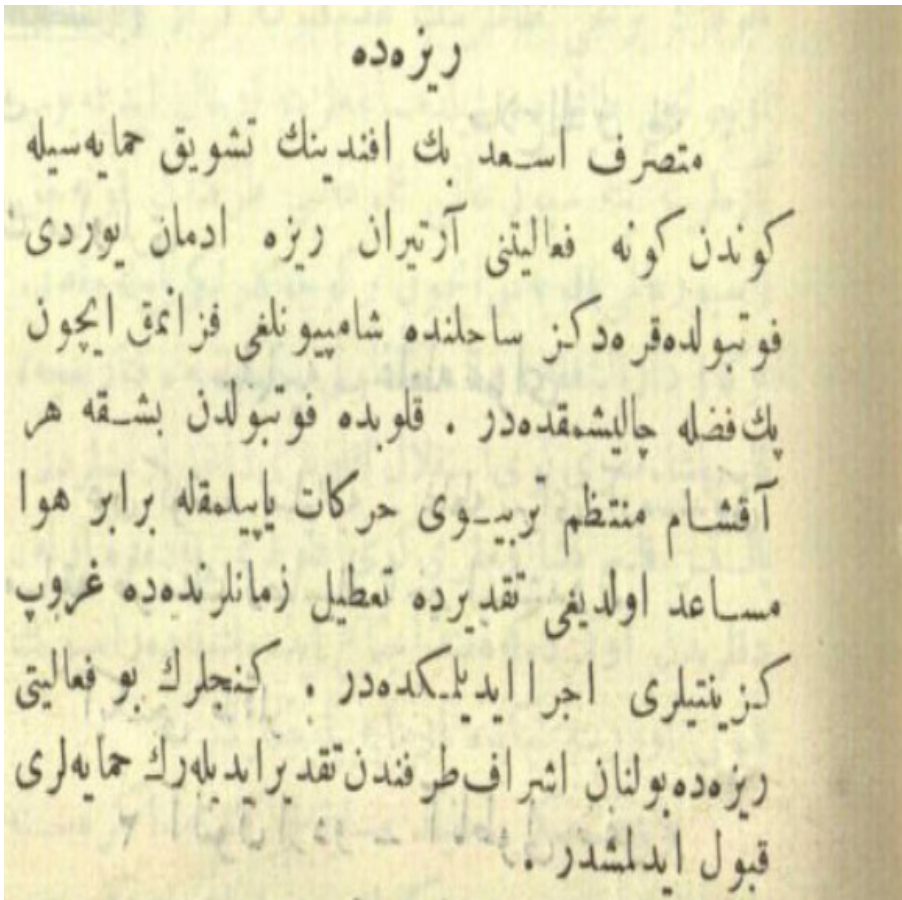 ریزه‌ده
متصرف اسعد بك افندینك تشویق حمایه‌سیله
كوندن كونه فعالیتنی آرتیران ریزه ادمان یوردی
فوتبولده‌قره‌دكز ساحلنده شامپیونلغی قزانمق ایچون
پك‌فضله چالیشمقده‌در . قلوبده فوتبولدن بشقه هر
آقشام منتظم تربیوی حركات یاپیلمقله برابر هوا
مساعد اولدیغی تقدیرده تعطیل زمانلرنده‌ده غروپ
كزینتیلری اجرا ایدیلمكده‌در . كنجلرك بو فعالیتی
ریزه‌ده‌بولنان اشراف‌طرفندن‌تقدیرایدیله‌رك حمایه‌لری
قبول ایدلمشدر .